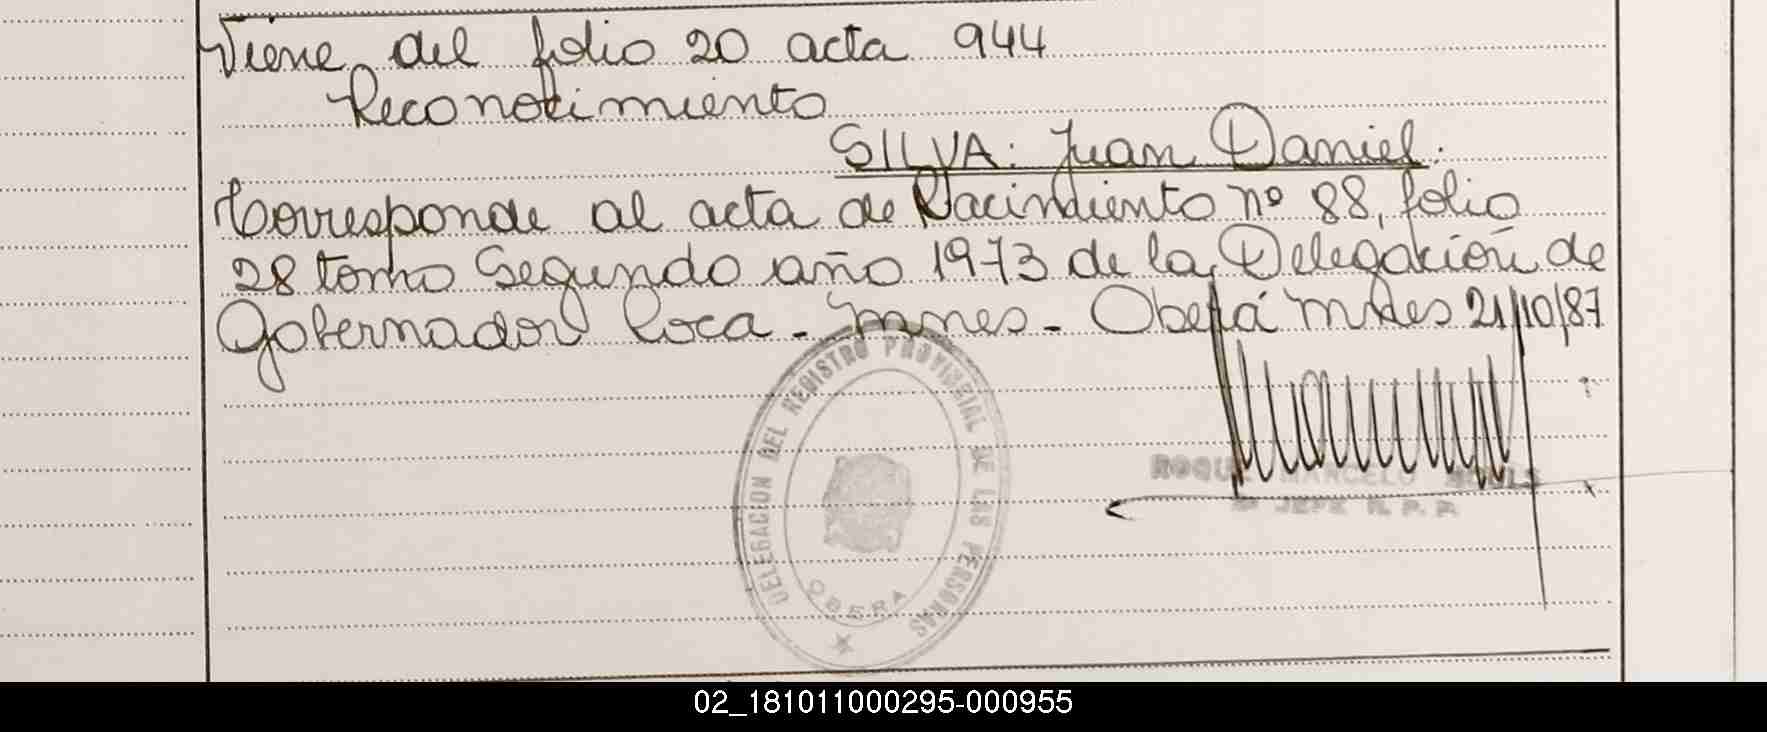 Viene del folio 20 acta 944
Reconocimiento
SILVA: Juan Daniel.
Corresponde al acta de Nacimiento nº 88, folio
28 tomo Segundo año 1973 de la Delegación de
Gobernador Roca - Mnes - Oberá Mnes 21/10/87
DELEGACION DEL REGISTRO PROVINCIAL DE LAS PERSONAS
OBERA
ROQUE MARCELO
JEFE R. P. P.
02_181011000295-000955